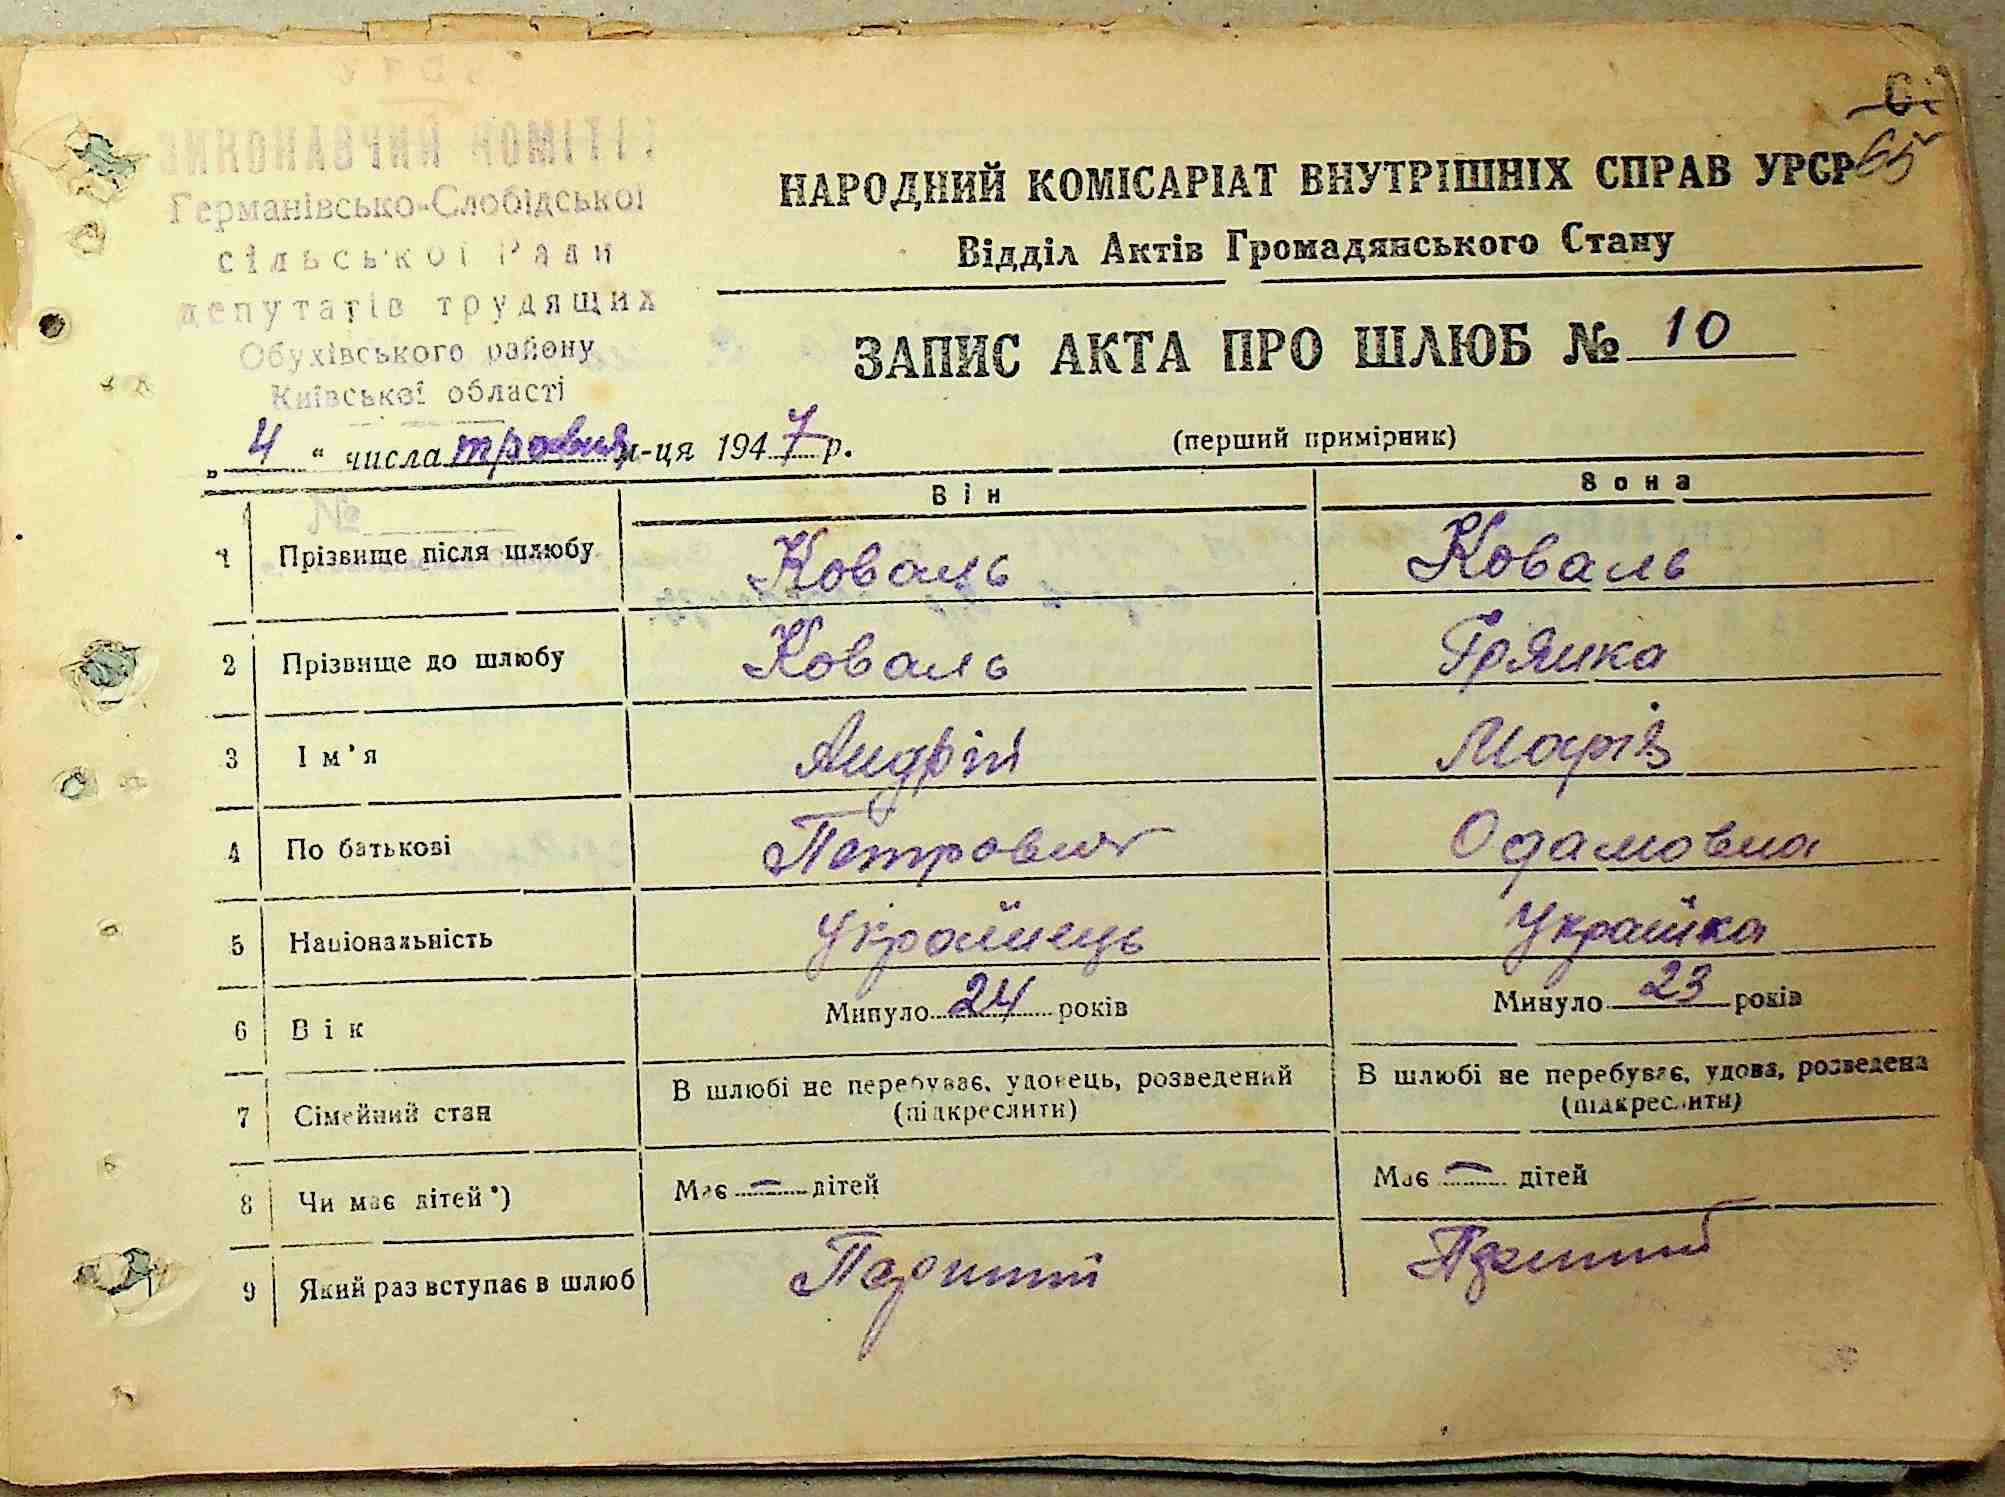 65
Германівсько-Слобідської
сільської Ради
депутатів трудящих
Обухівського району
Київської області
НАРОДНИЙ КОМІСАРІАТ ВНУТРІШНІХ СПРАВ УРСР
Відділ Актів Громадянського Стану
ЗАПИС АКТА ПРО ШЛЮБ № 10
„ 4 “ числа травня м-ця 1947 р. (перший примірник)
№
Він Вона
1 Прізвище після шлюбу Коваль Коваль
2 Прізвище до шлюбу Коваль
3 Ім'я Андрій Марія
4 По батькові Петрович Одамовна
5 Національність Українець Українка
6 Вік Минуло 24 років Минуло 23 років
7 Сімейний стан В шлюбі не перебуває, удовець, розведений (підкреслити) В шлюбі не перебуває, удова, розведена (підкреслити)
8 Чи має дітей*) Має — дітей Має — дітей
9 Який раз вступає в шлюб Перший Перший